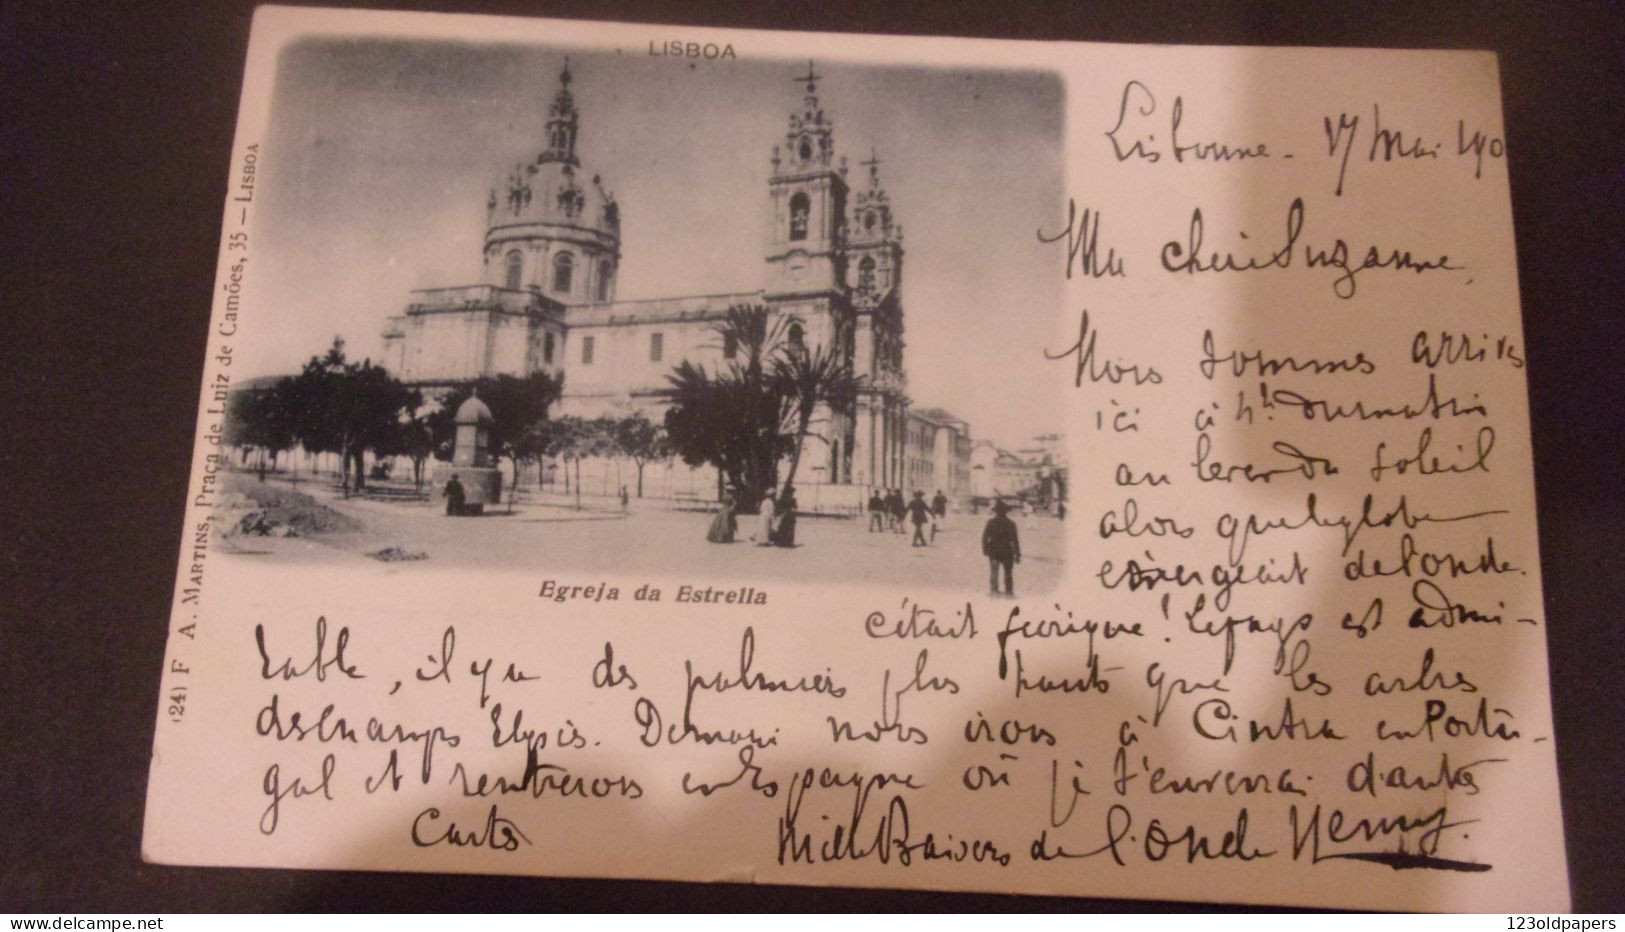 LISBOA
Lisbonne - 17 Mai 190
Ma chère Suzanne,
Nous sommes arrivés
ici à 4h du matin
au lever du soleil
alors que le globe
émergeait de l'onde.
c'était féérique! Le pays est admi-
rable, il y a des palmiers plus hauts que les arbres
des Champs Elysés. Demain nous irons à Cintra en Portu-
gal et rentrerons en Espagne où je t'enverrai d'autres
Cartes
Mille Baisers de l'Oncle Henry.
Egreja da Estrella
(24) F A. MARTINS, Praça de Luiz de Camões, 35 — LISBOA
123oldpapers